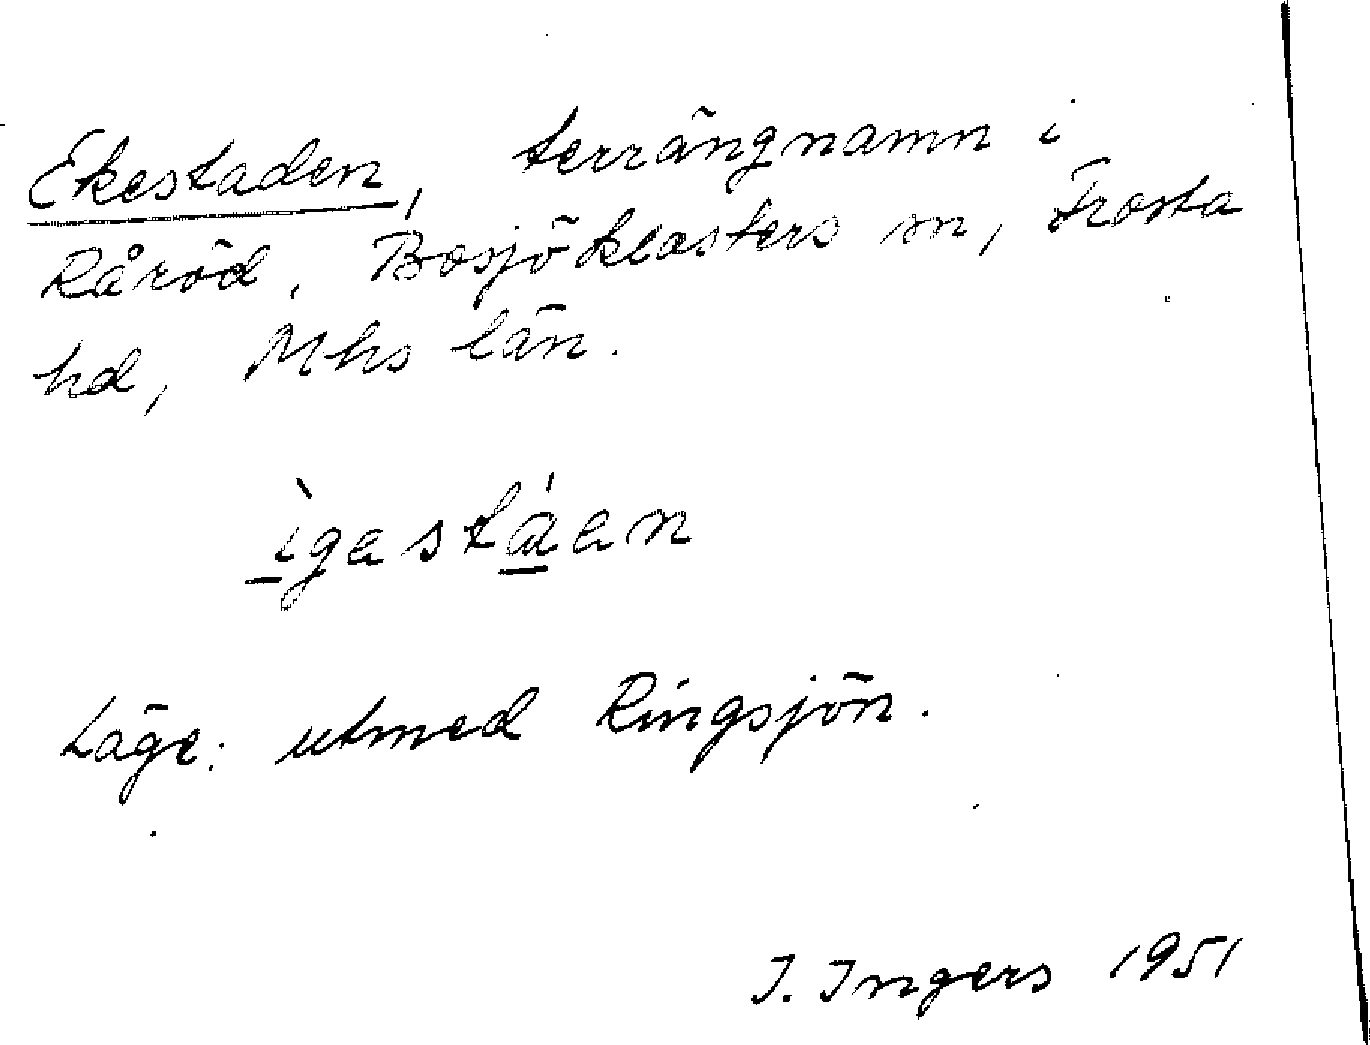 Ekestaden, terrängnamn i
Råröd, Bosjöklosters sn, Frosta
hd, Mhs län.
ìgastáan
Läge: utmed Ringsjön.
I. Ingers 1951